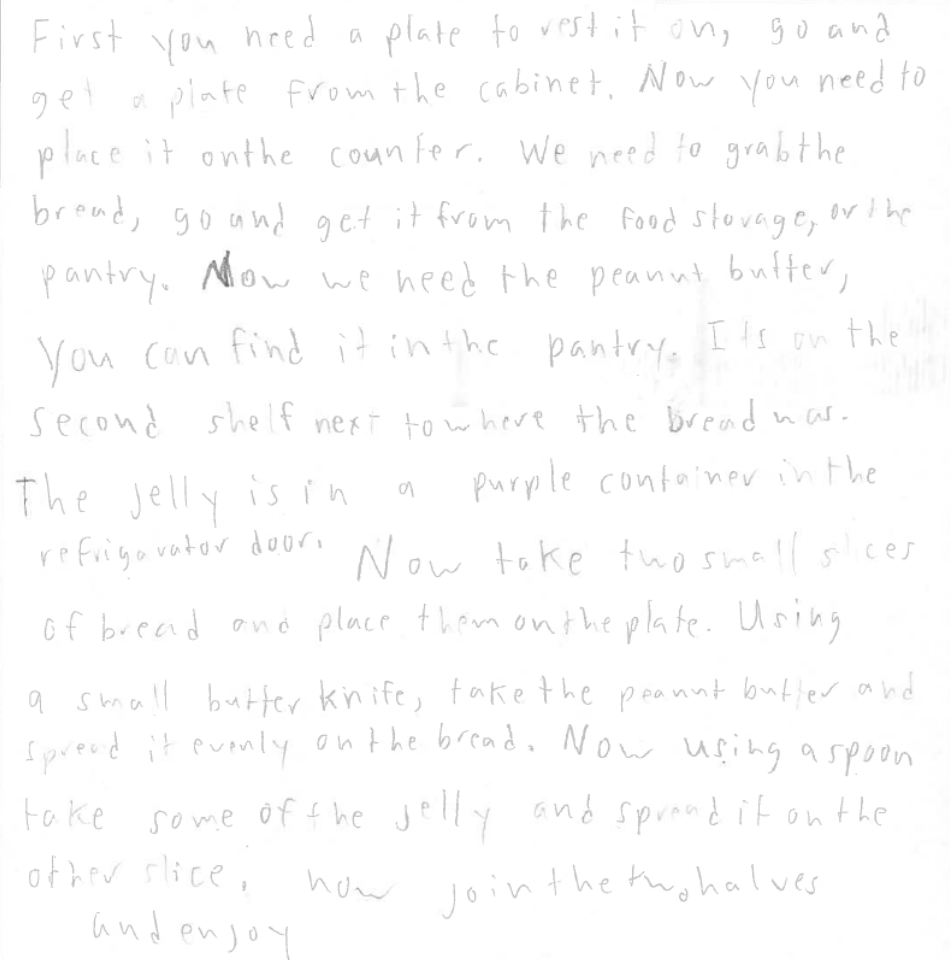 First you need a plate to rest it on, go and
get a plate from the cabinet. Now you need to
place it on the counter. We need to grab the
bread, go and get it from the food storage, or the
pantry. Now we need the peanut butter,
You can find it in the pantry. Its on the
second shelf next to where the bread was.
The jelly is in a purple container in the
refrigavator door. Now take two small slices
of bread and place them on the plate. Using
a small butter knife, take the peanut butter and
spread it evenly on the bread. Now using a spoon
take some of the jelly and spread it on the
other slice. now join the two halves
and enjoy